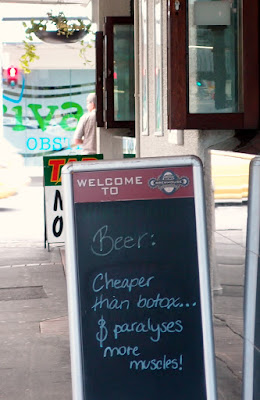 WELCOME
TO
Beer:
Cheaper
than botox...
& paralyses
more
muscles!
OBS